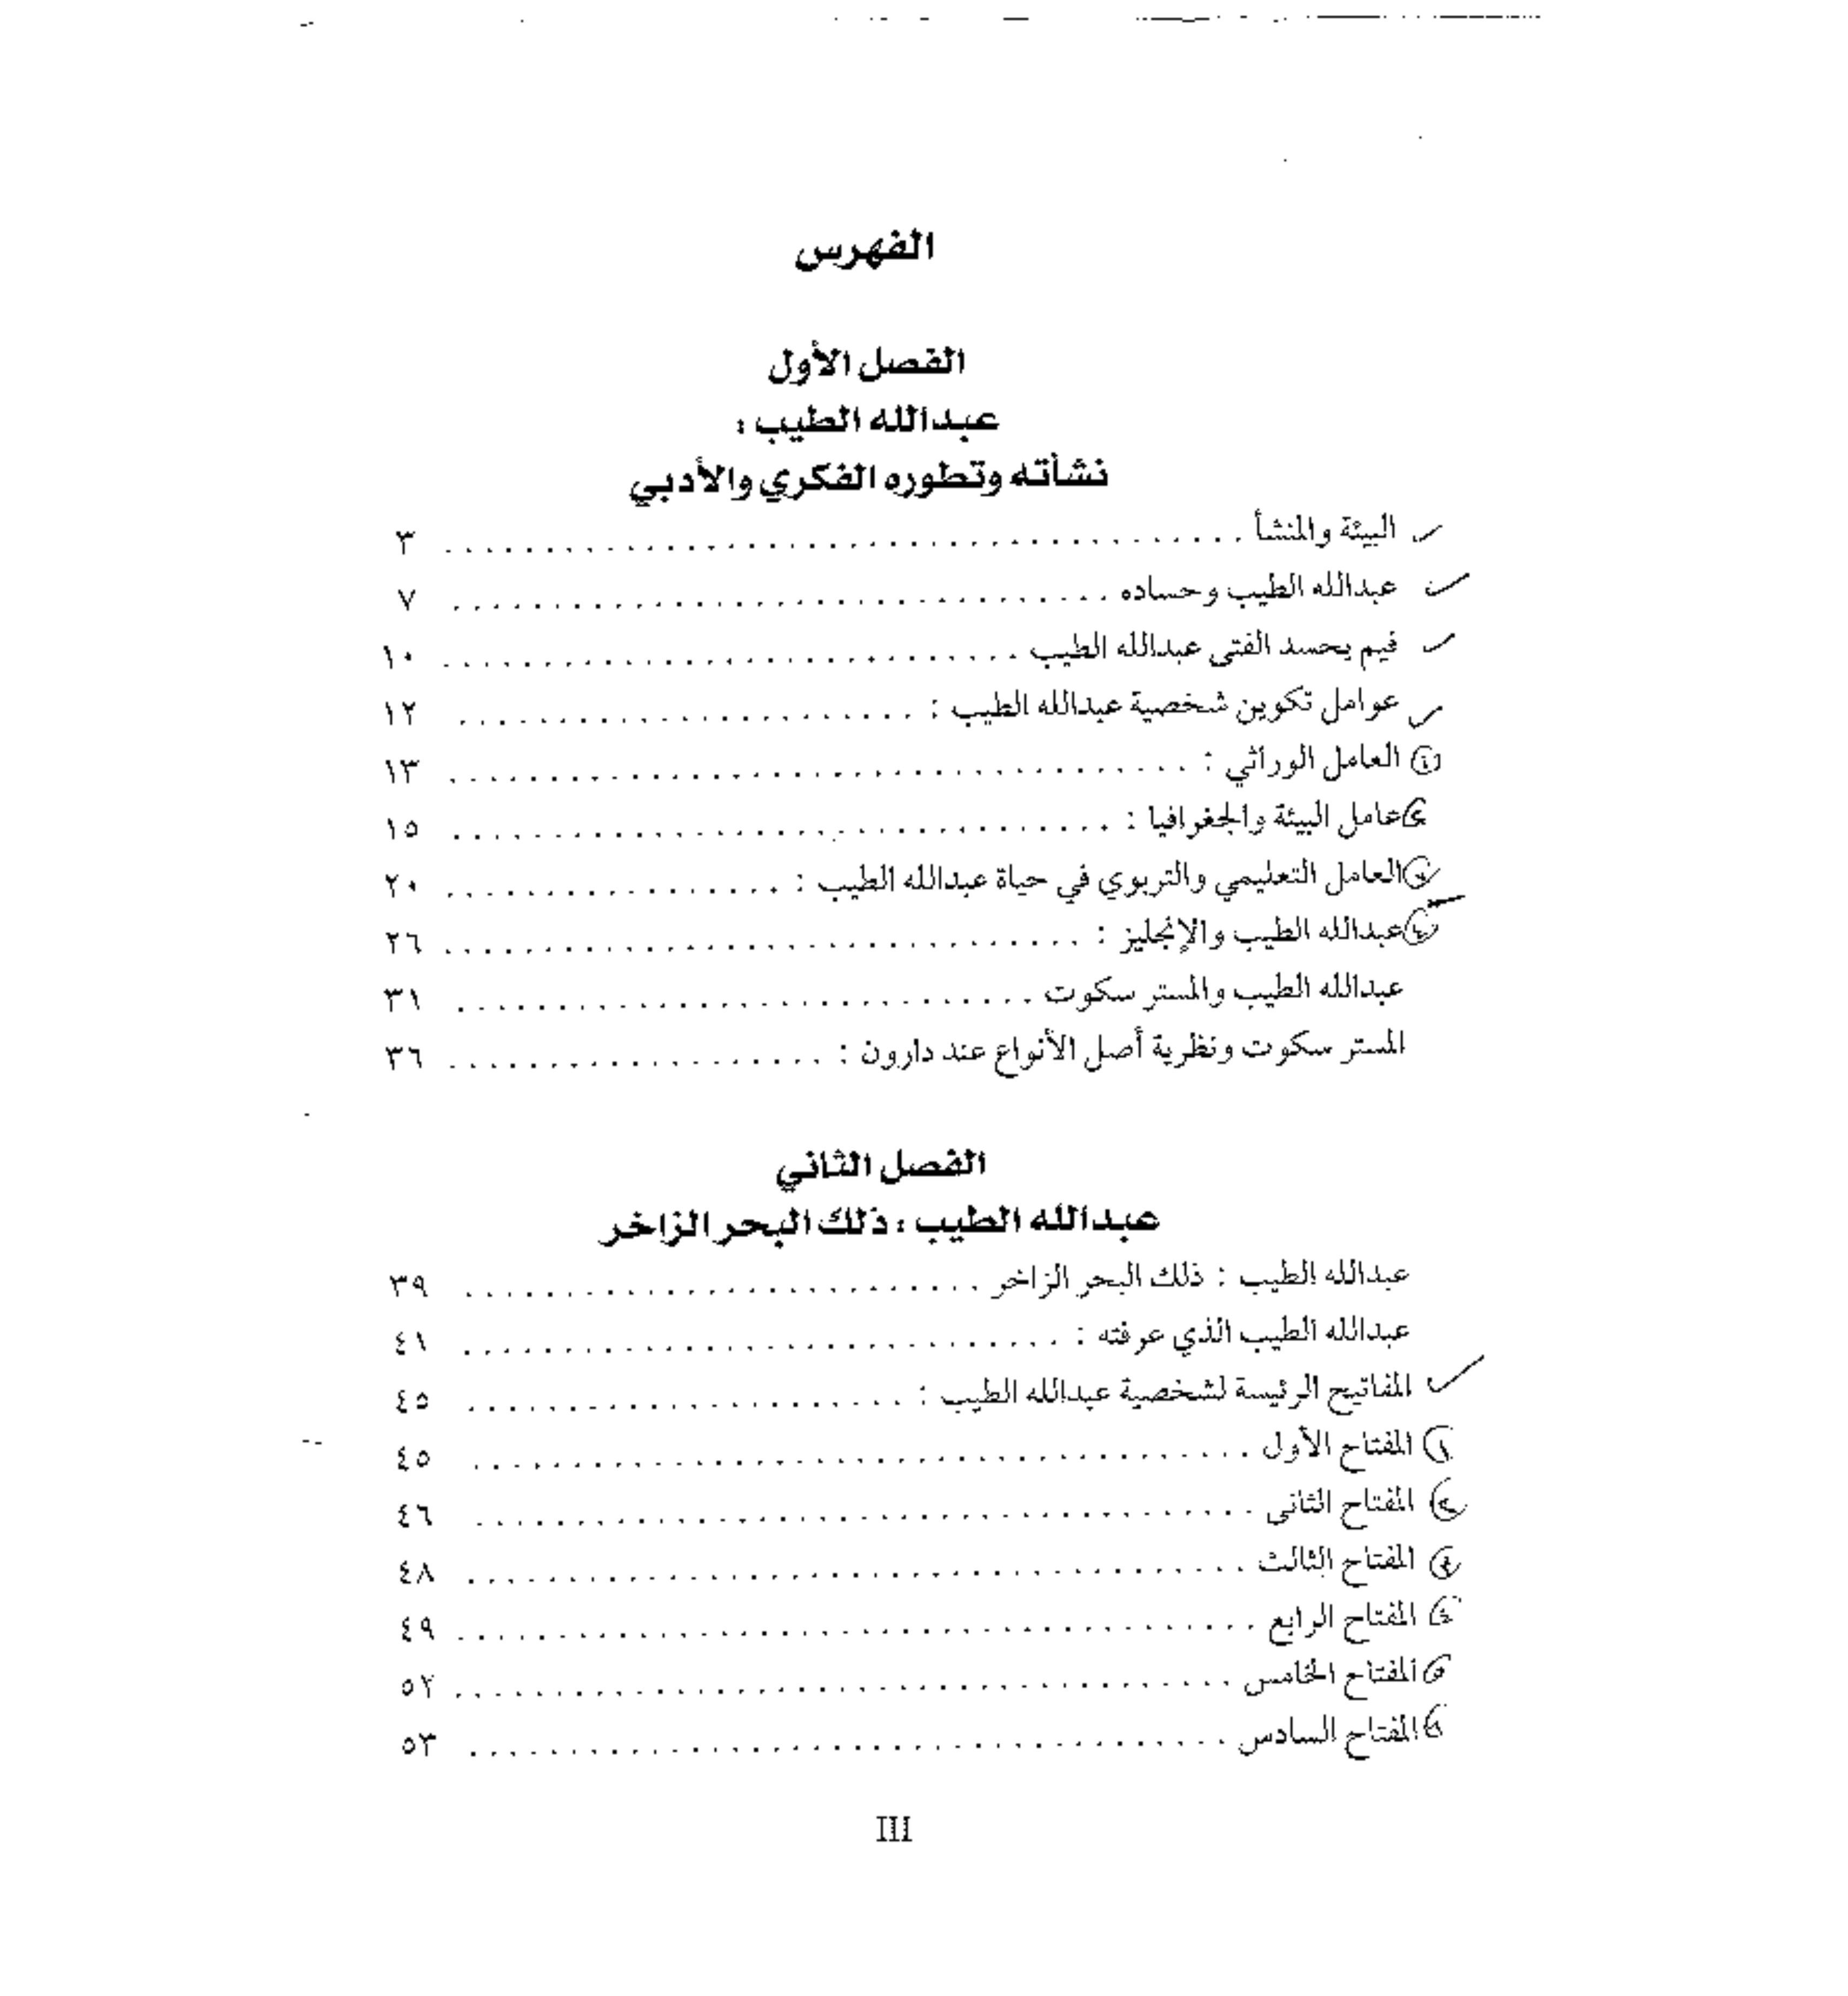 الفهرس
الفصل الأول
عبدالله الطيب :
نشأته وتطوره الفكري والأدبي
البيئة والمنشأ ........................................ ٣
عبدالله الطيب وحساده ................................. ٧
فيم يحسد الفتى عبدالله الطيب ............................. ١٠
عوامل تكوين شخصية عبدالله الطيب : ....................... ١٢
العامل الوراثي : ..................................... ١٣
عامل البيئة والجغرافيا : ................................. ١٥
العامل التعليمي والتربوي في حياة عبدالله الطيب : ................. ٢٠
عبدالله الطيب والإنجليز : ................................ ٢٦
عبدالله الطيب والمستر سكوت ............................. ٣١
المستر سكوت ونظرية أصل الأنواع عند دارون : ................... ٣٦
الفصل الثاني
عبدالله الطيب : ذلك البحر الزاخر
عبدالله الطيب : ذلك البحر الزاخر .......................... ٣٩
عبدالله الطيب الذي عرفته : .............................. ٤١
المفاتيح الرئيسة لشخصية عبدالله الطيب : ...................... ٤٥
المفتاح الأول ....................................... ٤٥
المفتاح الثانى ....................................... ٤٦
المفتاح الثالث ....................................... ٤٨
المفتاح الرابع ........................................ ٤٩
المفتاح الخامس ....................................... ٥٢
المفتاح السادس ...................................... ٥٣
III